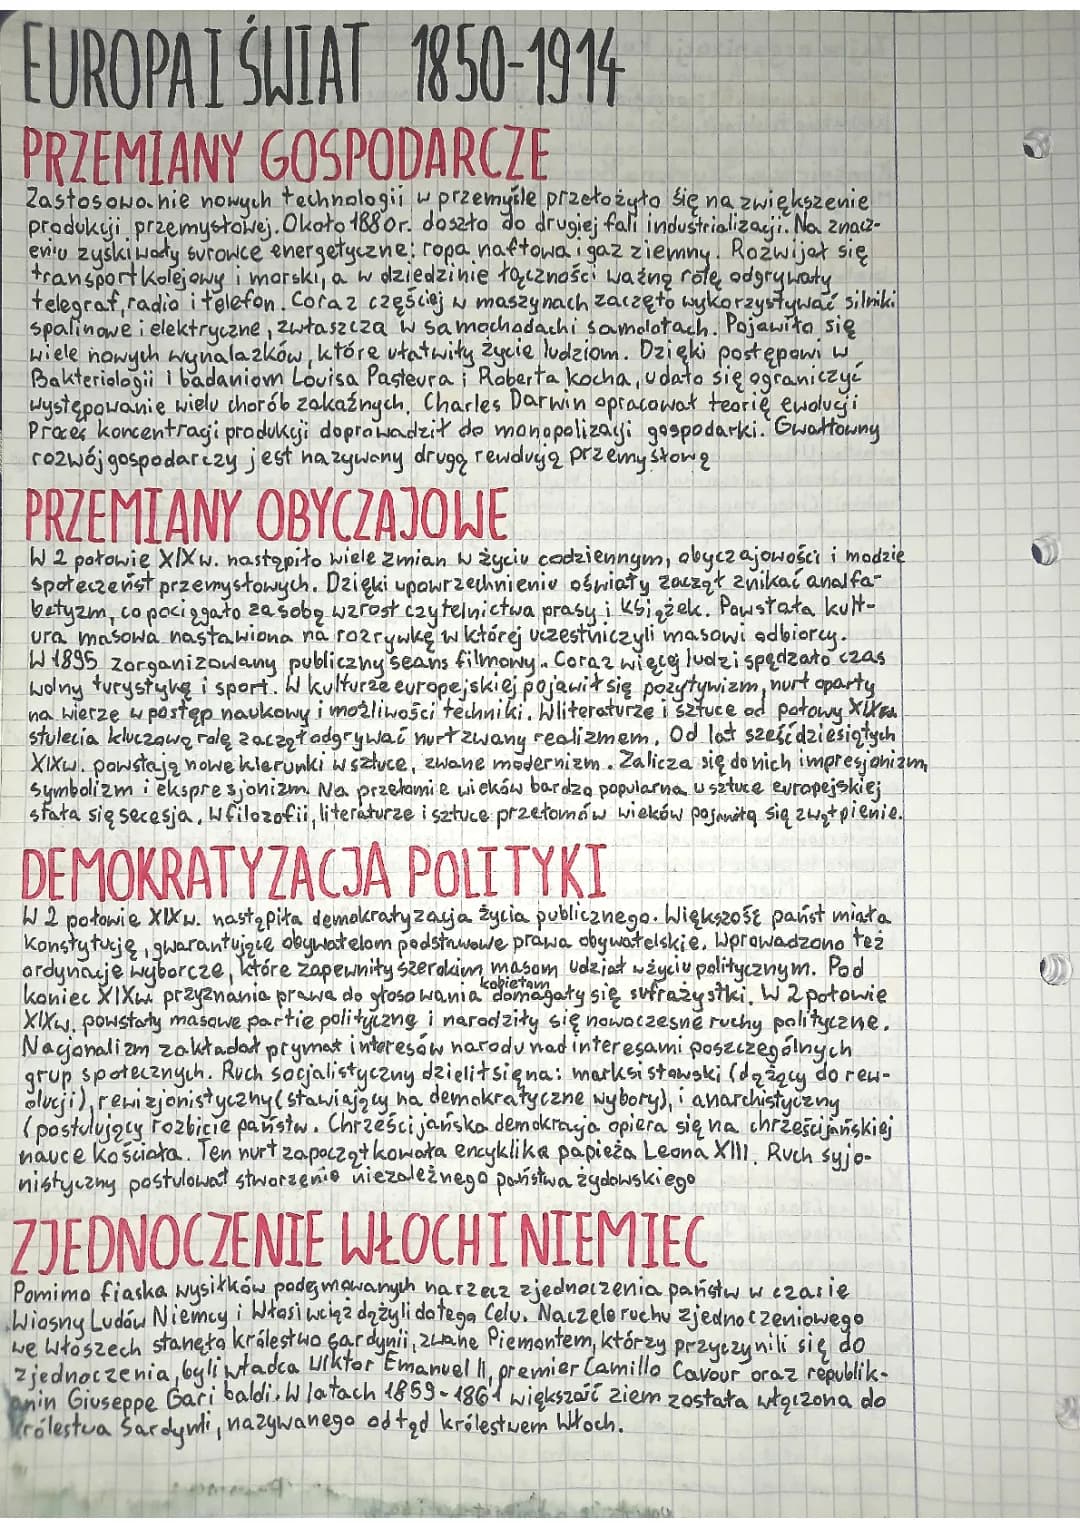 EUROPA I ŚWIAT 1850-1914
PRZEMIANY GOSPODARCZE
Zastosowanie nowych technologii w przemyśle przełożyło się na zwiększenie
produkcji przemysłowej. Około 1880r. doszło do drugiej fali industrializacji. Na znacz-
eniu zyskiwały surowce energetyczne: ropa naftowa i gaz ziemny. Rozwijał się
transport kolejowy i morski, a w dziedzinie łączności ważną rolę odgrywały
telegraf, radio i telefon. Coraz częściej w maszynach zaczęto wykorzystywać silniki
spalinowe i elektryczne, zwłaszcza w samochodach i samolotach. Pojawiło się
wiele nowych wynalazków, które ułatwiły życie ludziom. Dzięki postępowi w
Bakteriologii i badaniom Louisa Pasteura i Roberta Kocha, udało się ograniczyć
występowanie wielu chorób zakaźnych. Charles Darwin opracował teorię ewolucji
Proces koncentracji produkcji doprowadził do monopolizacji gospodarki. Gwałtowny
rozwój gospodarczy jest nazywany drugą rewolucją przemysłową
PRZEMIANY OBYCZAJOWE
W 2 połowie XIXw. nastąpiło wiele zmian w życiu codziennym, obyczajowości i modzie
społeczeńst przemysłowych. Dzięki upowrzechnieniu oświaty zaczął znikać analfa-
betyzm, co pociągało za sobą wzrost czytelnictwa prasy i książek. Powstała kult-
ura masowa nastawiona na rozrywkę w której uczestniczyli masowi odbiorcy.
W 1895 zorganizowany publiczny seans filmowy. Coraz więcej ludzi spędzało czas
wolny turystykę i sport. W kulturze europejskiej pojawił się pozytywizm, nurt oparty
na wierze w postęp naukowy i możliwości techniki. W literaturze i sztuce od połowy XIX
stulecia kluczową rolę zaczął odgrywać nurt zwany realizmem. Od lat sześćdziesiątych
XIXw. powstają nowe kierunki w sztuce, zwane modernizm. Zalicza się do nich impresjonizm,
symbolizm i ekspresjonizm. Na przełomie wieków bardzo popularna w sztuce europejskiej
stała się secesja. W filozofii, literaturze i sztuce przełomów wieków pojawiło się zwątpienie.
DEMOKRATYZACJA POLITYKI
W 2 połowie XIXw. nastąpiła demokratyzacja życia publicznego. Większość państ miała
Konstytucję, gwarantującę obywatelom podstawowe prawa obywatelskie. Wprowadzono też
ordynację wyborcze, które zapewniły szerokim masom udział w życiu politycznym. Pod
koniec XIXw. przyznania prawa do głosowania kobietom domagały się sufrażystki. W 2 połowie
XIXw. powstały masowe partie polityczne i narodziły się nowoczesne ruchy polityczne.
Nacjonalizm zakładał prymat interesów narodu nad interesami poszczególnych
grup społecznych. Ruch socjalistyczny dzielił się na: marksistowski (dążący do rew-
olucji), rewizjonistyczny (stawiający na demokratyczne wybory), i anarchistyczny
(postulujący rozbicie państw. Chrześcijańska demokracja opiera się na chrześcijańskiej
nauce kościoła. Ten nurt zapoczątkowała encyklika papieża Leona XIII. Ruch syjo-
nistyczny postulował stworzenie niezależnego państwa żydowskiego
ZJEDNOCZENIE WŁOCH I NIEMIEC
Pomimo fiaska wysiłków podejmowanych na rzecz zjednoczenia państw w czasie
Wiosny Ludów Niemcy i Włosi wciąż dążyli do tego Celu. Na czele ruchu zjednoczeniowego
we Włoszech stanęło królestwo sardynii, zwane Piemontem, którzy przyczynili się do
zjednoczenia, byli władca Wiktor Emanuel II, premier Camillo Cavour oraz republik-
anin Giuseppe Garibaldi. W latach 1859-1861 większość ziem została włączona do
królestwa Sardynii, nazywanego odtąd królestwem Włoch.